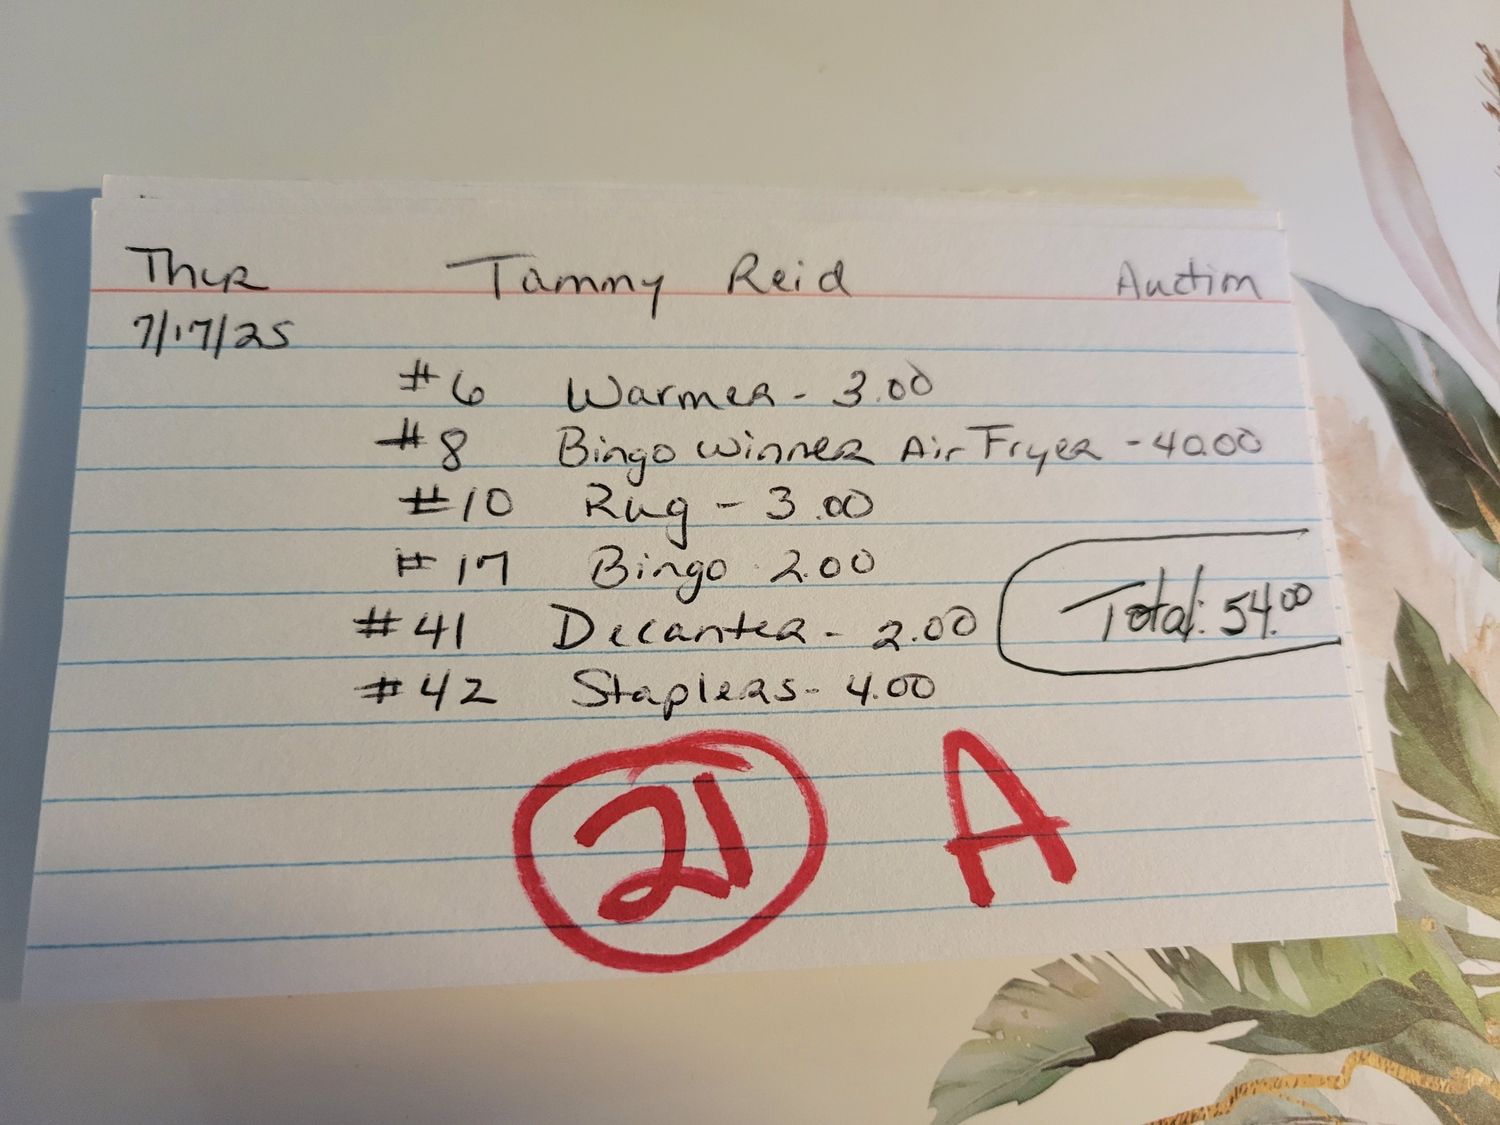 Thur Tammy Reid Auction
7/17/25
#6 Warmer - 3.00
#8 Bingo winner Air Fryer - 40.00
#10 Rug - 3.00
#17 Bingo 2.00
#41 Decanter - 2.00
Total: 54.00
#42 Staplers - 4.00
21 A